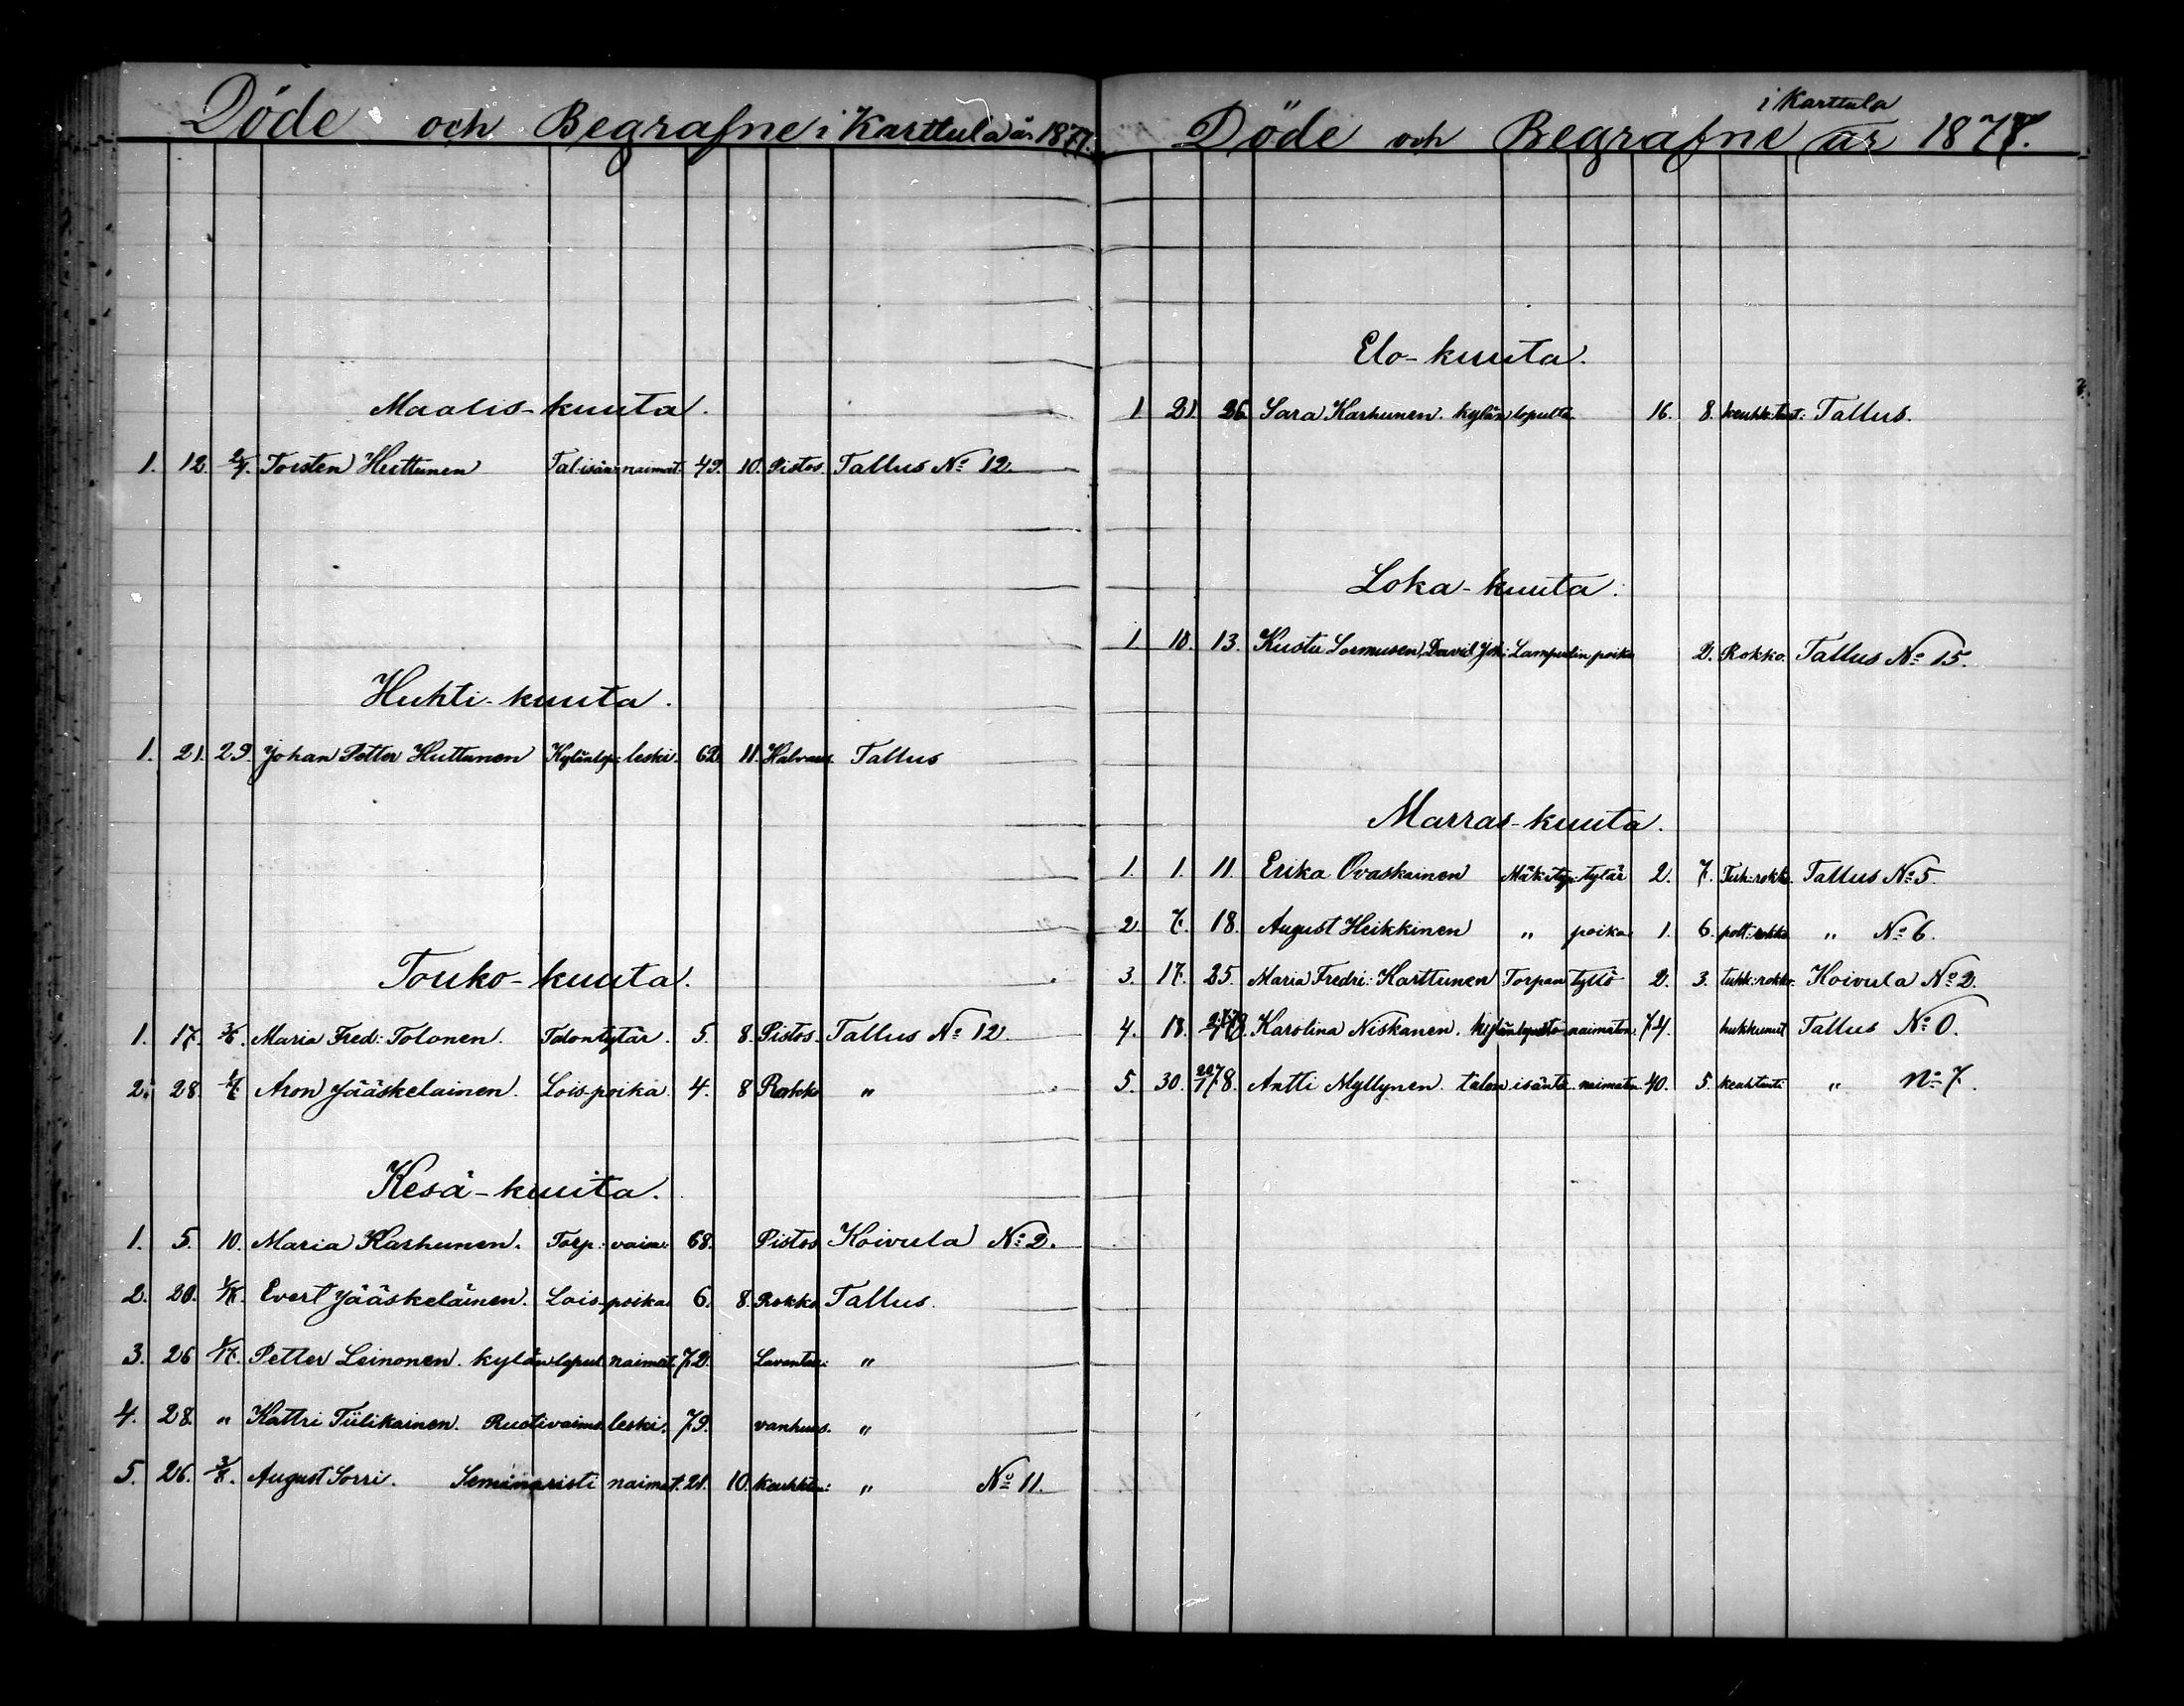 Döde och Begrafne i Karttula år 1877.
Maalis-kuuta.
1. 12. 2/4. Torsten Huttunen Tal: isän: naimat. 49. 10. Pistos. Tallus No 12.
Huhti-kuuta.
1. 21. 29. Johan Petter Huttunen Kylänlop: leski. 62 11. Halvaus. Tallus
Touko-kuuta.
1. 17. Maria Fred: Tolonen. Talon tytär. 5. 8. Pistos. Tallus No 12.
2. 28. Aron Jääskelainen. Lois-poika. 4. 8 Rokko "
Kesä-kuuta.
1. 5. 10. Maria Karhunen. Torp: vaim: 68. Pistos Koivula No 2.
2. 20. Evert Jääskeläinen. Lois-poika. 6. 8. Rokko Tallus.
3. 26 Petter Leinonen. kylän lopul naimat. 72. "
4. 28. " Kattri Tiilikainen. Ruotivaimo leski. 79. vanhuus. "
5. 26. August Sorri. Seminaristi naimat. 21. 10. keuhkta: " No 11.
Döde och Begrafne i Karttula år 1877.
Elo-kuuta.
1. 21. 26. Sara Karhunen. kylän lopulta 16. 8. keuhk:taut: Tallus.
Loka-kuuta.
1. 10. 13. Kustu Sormusen, David Joh: Lampuodin poika 2. Rokko. Tallus No 15.
Marras-kuuta.
1. 1. 11. Erika Ovaskainen Mäkitup: tytär 2. 7. Tuh:rokko. Tallus No 5.
2. 7. 18. August Heikkinen " poika 1. 6. " No 6.
3. 17. 25. Maria Fredri: Karttunen Torpan tyttö 2. 3. tuhk:rokko. Koivula No 2.
4. 18. Karolina Niskanen. kylänlopulta naimaton. 74. hukkunut Tallus No 0.
5. 30. Antti Myllynen. talon isäntä naimaton. 40. 5. keuhtauti " No 7.